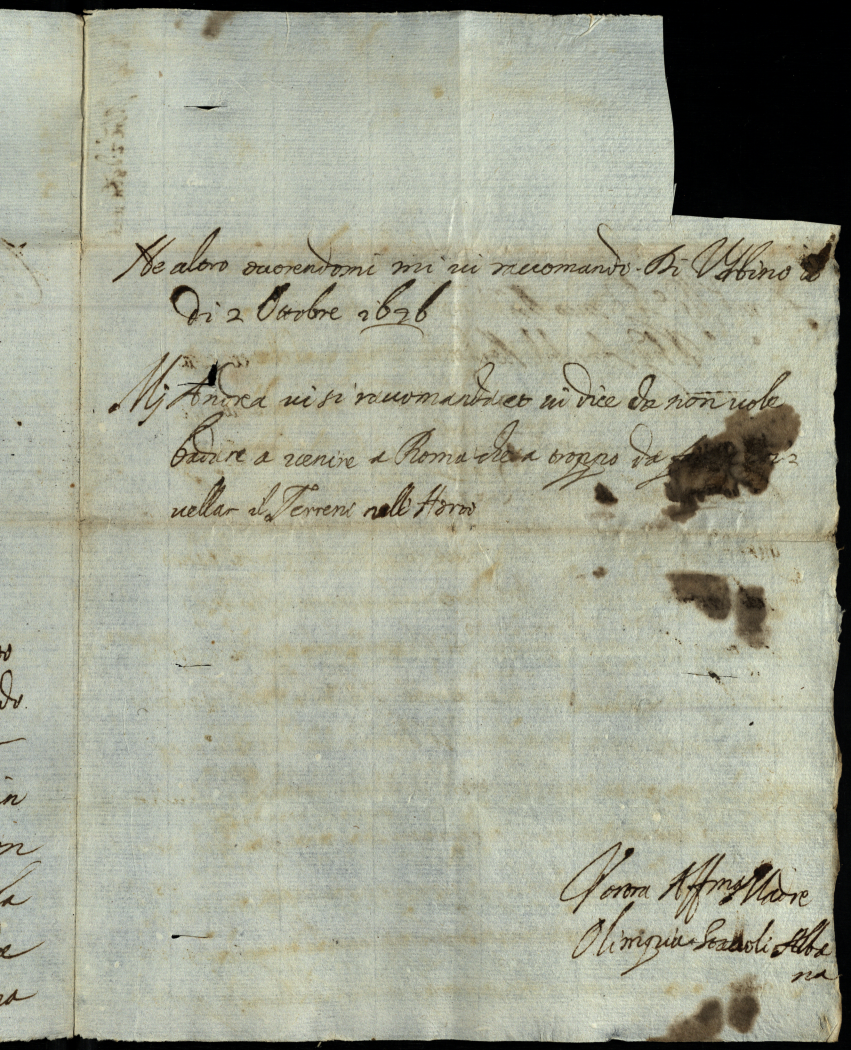 Ne altro ocorendomi mi vi racomando. Di Urbino il
di 2 Ottobre 1626
Mj Andrea vi si racomanda et vi dice che non vole
badare a venire a Roma che a troppo da
vellar il Terreno nelli Horto
Vostra Affma Madre
Olimpia Alba
na
do.
in
la